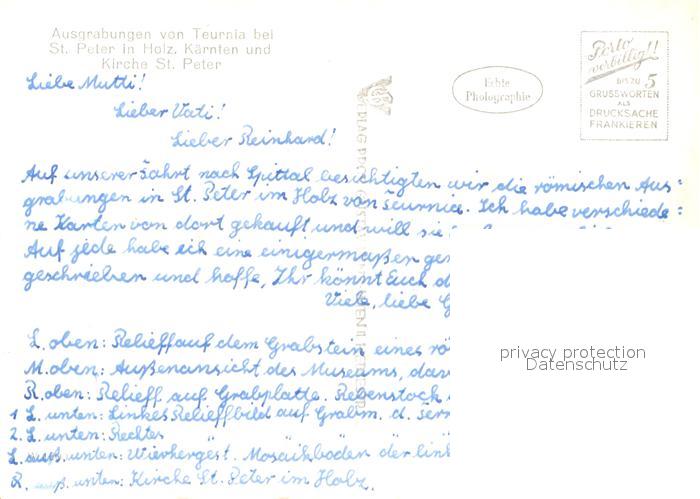 Ausgrabungen von Teurnia bei
St. Peter in Holz, Kärnten und
Kirche St. Peter
Echte
Photographie
Porto
verbilligt!!
BIS ZU 5
GRUSSWORTEN
ALS
DRUCKSACHE
FRANKIEREN
Liebe Mutti!
Lieber Vati!
Lieber Reinhard!
Auf unserer Fahrt nach Spittal besichtigten wir die römischen Aus=
grabungen in St. Peter im Holz von Teurnia. Ich habe verschiede=
ne Karten von dort gekauft und will sie
Auf jede habe ich eine einigermaßen ges
geschrieben und hoffe, Ihr könnt Euch d
Viele, liebe G
L. oben: Relief auf dem Grabstein eines rö
M. oben: Außenansicht des Museums, dav
R. oben: Relieff auf Grabplatte. Rebenstock
1 L. unten: Linkes Reliefbild auf Grabm. d.
2. L. unten: Rechtes " "
L. auß. unten: Mosaikboden der link
R. auß. unten: Kirche St. Peter im Holz.
VERLAG
privacy protection
Datenschutz